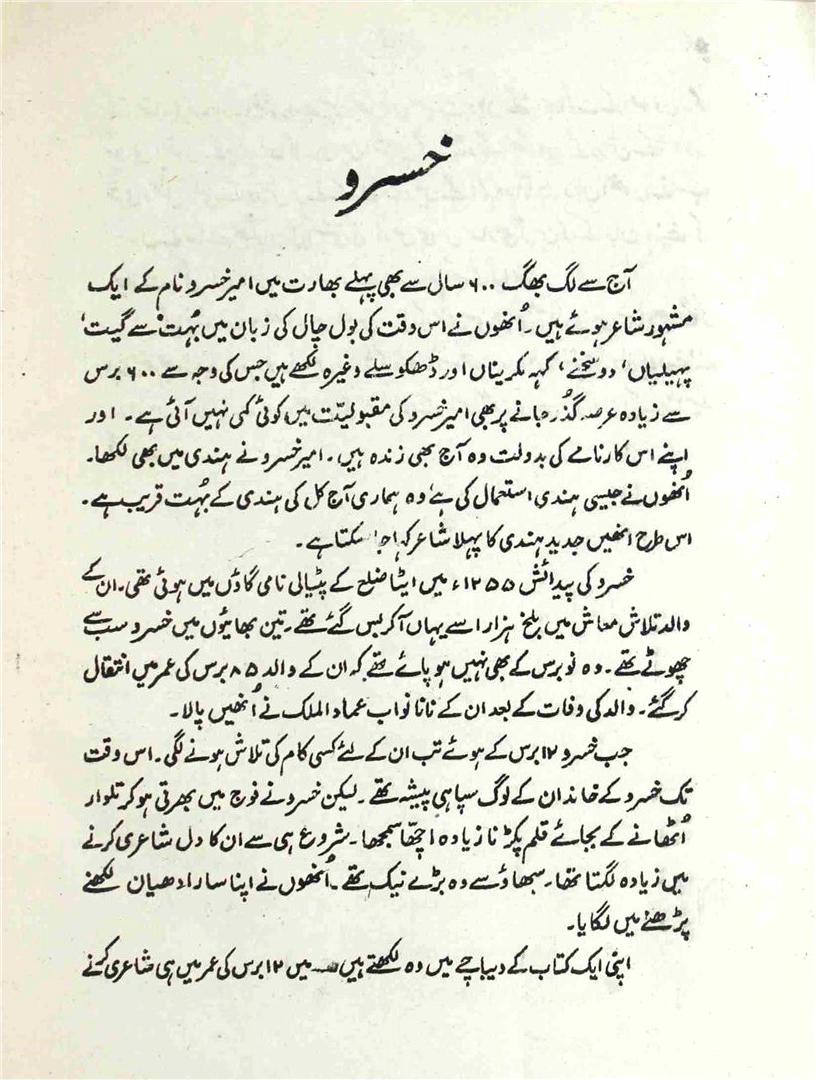 خسرو
آج سے لگ بھگ ۶۰۰ سال سے بھی پہلے بھارت میں امیر خسرو نام کے ایک
مشہور شاعر ہوئے ہیں۔ اُنھوں نے اس وقت کی بول چال کی زبان میں بہُت سے گیت،
پہیلیاں، دو سخنے، کہہ مکریناں اور ڈھکوسلے وغیرہ لکھے ہیں جس کی وجہ سے ۶۰۰ برس
سے زیادہ عرصہ گذُر جانے پر بھی امیر خسرو کی مقبولیّت میں کوئی کمی نہیں آئی ہے۔ اور
اپنے اس کارنامے کی بدولت وہ آج بھی زندہ ہیں۔ امیر خسرو نے ہندی میں بھی لکھا۔
اُنھوں نے جیسی ہندی استعمال کی ہے، وہ ہماری آج کل کی ہندی کے بہُت قریب ہے۔
اس طرح انھیں جدید ہندی کا پہلا شاعر کہا جا سکتا ہے۔
خسرو کی پیدائش ۱۲۵۵ء میں ایٹا ضلع کے پٹیالی نامی گاؤں میں ہوئی تھی۔ ان کے
والد تلاش معاش میں بلخ ہزار اسے یہاں آکر بس گئے تھے۔ تین بھائیوں میں خسرو سب سے
چھوٹے تھے۔ وہ نو برس کے بھی نہیں ہو پائے تھے کہ ان کے والد ۸۵ برس کی عمر میں انتقال
کر گئے۔ والد کی وفات کے بعد ان کے نانا نواب عماد الملک نے اُنھیں پالا۔
جب خسرو ۱۲ برس کے ہوئے تب ان کے لئے کسی کام کی تلاش ہونے لگی۔ اس وقت
تک خسرو کے خاندان کے لوگ سپاہی پیشہ تھے۔ لیکن خسرو نے فوج میں بھرتی ہو کر تلوار
اُٹھانے کے بجائے قلم پکڑنا زیادہ اچھّا سمجھا۔ شروع ہی سے ان کا دل شاعری کرنے
میں زیادہ لگتا تھا۔ سبھاؤ سے وہ بڑے نیک تھے۔ اُنھوں نے اپنا سارا دھیان لکھنے
پڑھنے میں لگایا۔
اپنی ایک کتاب کے دیباچے میں وہ لکھتے ہیں — میں ۱۲ برس کی عمر میں ہی شاعری کرنے